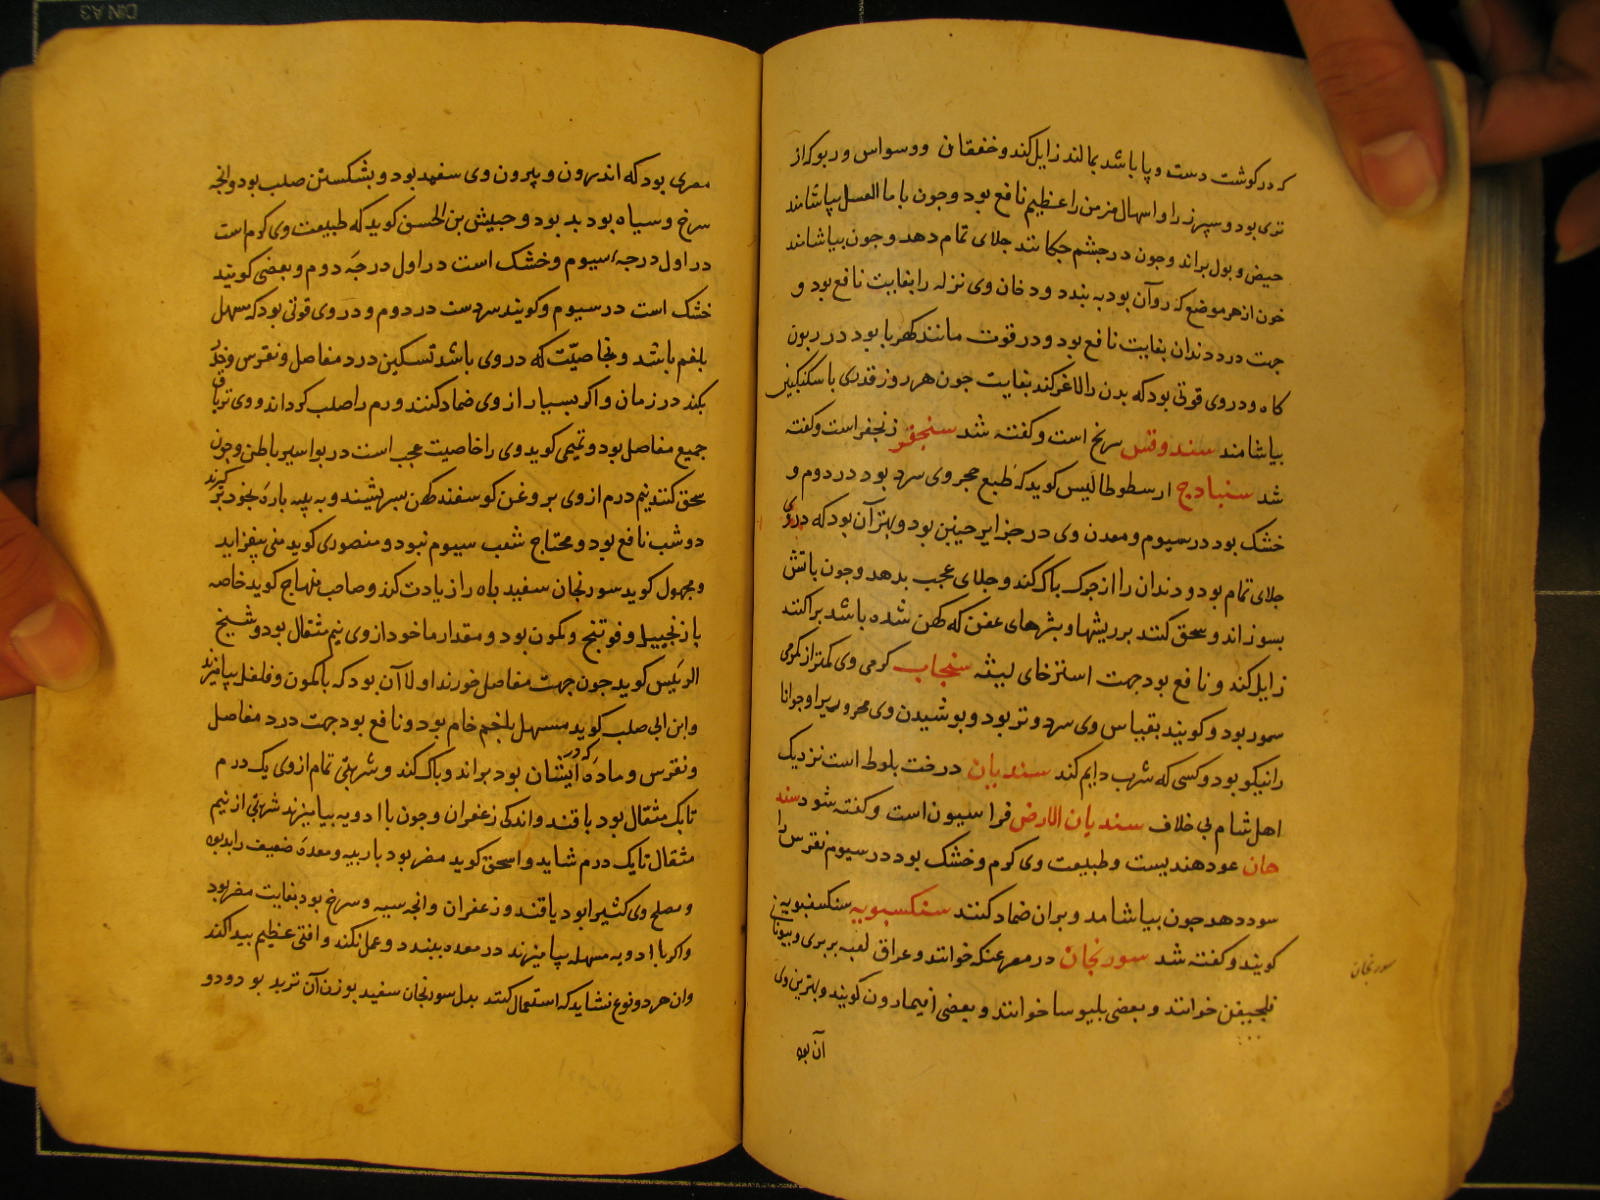 که در گوشت دست و پا باشد بمالند زایل کند و خفقان و وسواس و ربو که از
تری بود و سپرز را و اسهال مزمن را عظیم نافع بود و چون با ما العسل بیاشامند
حیض و بول براند و چون در چشم چکانند جلای تمام دهد و چون بیاشامند
خون از هر موضع که روان بود به بندد و دخان وی نزله را بغایت نافع بود و
جهت درد دندان بغایت نافع بود و در قوت مانند کهربا بود در ربودن
کاه و در وی قوتی بود که بدن را لاغر کند بغایت چون هر روز قدری با سکنکبین
بیاشامند سندوقس سرنج است و گفته شد سنجفر زنجفر است و گفته
شد سنبادج ارسطوطالیس گوید که طبع حجر وی سرد بود در دوم و
خشک بود در سیوم و معدن وی در جزایر چین بود و بهتر آن بود که در وی
جلای تمام بود و دندان را از چرک پاک کند و جلای عجب بدهد و چون باتش
بسوزاند و سحق کنند بر ریشها و بثرهای عفن که کهن شده باشد پراکنند
زایل کند و نافع بود جهت استرخای لیثه سنجاب گرمی وی کمتر از گرمی
سمور بود و گویند بقیاس وی سرد و تر بود و پوشیدن وی محرور یرا و جوانا
را نیکو بود و کسی که شرب دایم کند سندیان درخت بلوط است نزدیک
اهل شام بی خلاف سندیان الارض فراسیون است و گفته شود سند
هان عود هندیست و طبیعت وی گرم و خشک بود در سیوم نقرس را
سود دهد چون بیاشامد و بران ضماد کنند سنکسبویه سنکسبویه نیز
گویند و گفته شد سورنجان در مصر عنکه خوانند و عراق لعبه بربری و بیونانی
فلجیقن خوانند و بعضی بلبوسا خوانند و بعضی انیمارون گویند و بهترین وی
سورنجان
آن بود
مصری بود که اندرون و بیرون وی سفید بود و بشکستن صلب بود و انچه
سرخ و سیاه بود بد بود و حبیش بن الحسن گوید که طبیعت وی گرم است
در اول درجه سیوم و خشک است در اول درجه دوم و بعضی گویند
خشک است در سیوم و گویند سردست در دوم و در وی قوتی بود که مسهل
بلغم باشد و بخاصیت که در وی باشد تسکین درد مفاصل و نقرس و درد
بکند در زمان و اگر بسیار از وی ضماد کنند ورم را صلب گرداند و وی تریاق
جمیع مفاصل بود و تمیمی گوید وی را خاصیت عجب است در بواسیر باطن و چون
سحق کنند نیم درم از وی بروغن گوسفند کهن بسرشند و به پیه پاره بخود برگیرند
دو شب نافع بود و محتاج شب سیوم نبود و منصوری گوید منی بیفزاید
و مجهول گوید سورنجان سفید باه را زیادت کند و صاحب منهاج گوید خاصه
با زنجبیل و فوتنج و کمون بود و مقدار ماخود از وی نیم مثقال بود و شیخ
الرئیس گوید چون جهت مفاصل خورند اولا آن بود که با کمون و فلفل بیامیزند
و ابن ابی صلب گوید مسهل بلغم خام بود و نافع بود جهت درد مفاصل
و نقرس و ماده که در ایشان بود براند و پاک کند و شربتی تمام از وی یک درم
تا یک مثقال بود با قند و اندکی زعفران و چون با ادویه بیامیزند شربتی از نیم
مثقال تا یک درم شاید و اسحق گوید مضر بود باربیه و معده ضعیف را بد بود
و مصلح وی کثیرا بود یا قند و زعفران و انچه سیه و سرخ بود بغایت مضر بود
و اگر با ادویه مسهله بیامیزند در معده ببندد و عمل نکند و افتی عظیم پیدا کند
و ان هر دو نوع نشاید که استعمال کنند بدل سورنجان سفید بوزن آن تربد بود و دو